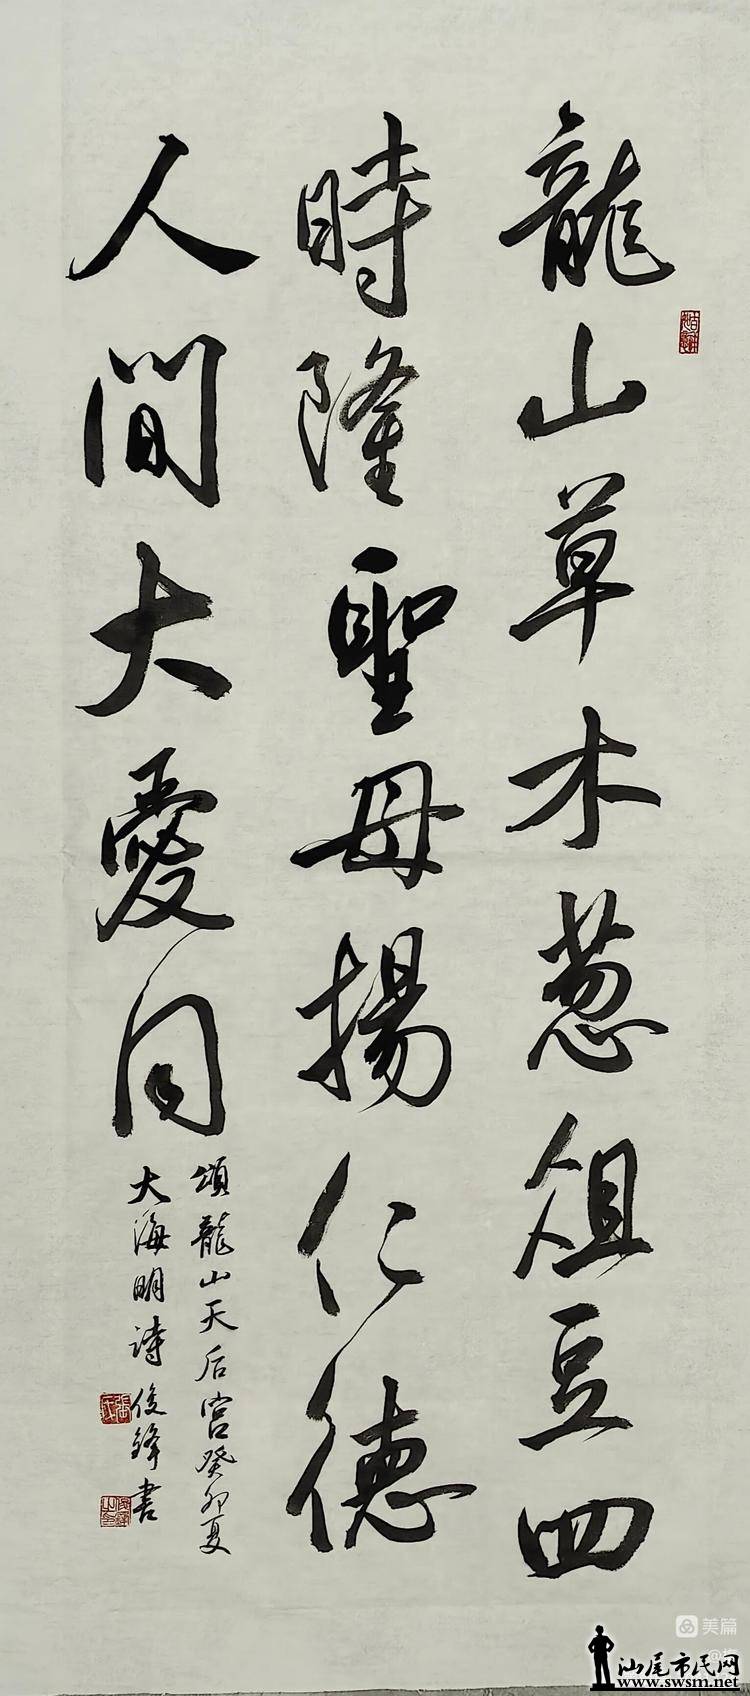 龍山草木葱俎豆四
時隆聖母揚仁德
人間大愛同
頌龍山天后宮癸卯夏
大海明诗俊鋒書
美篇
汕尾市民网
www.swsm.net